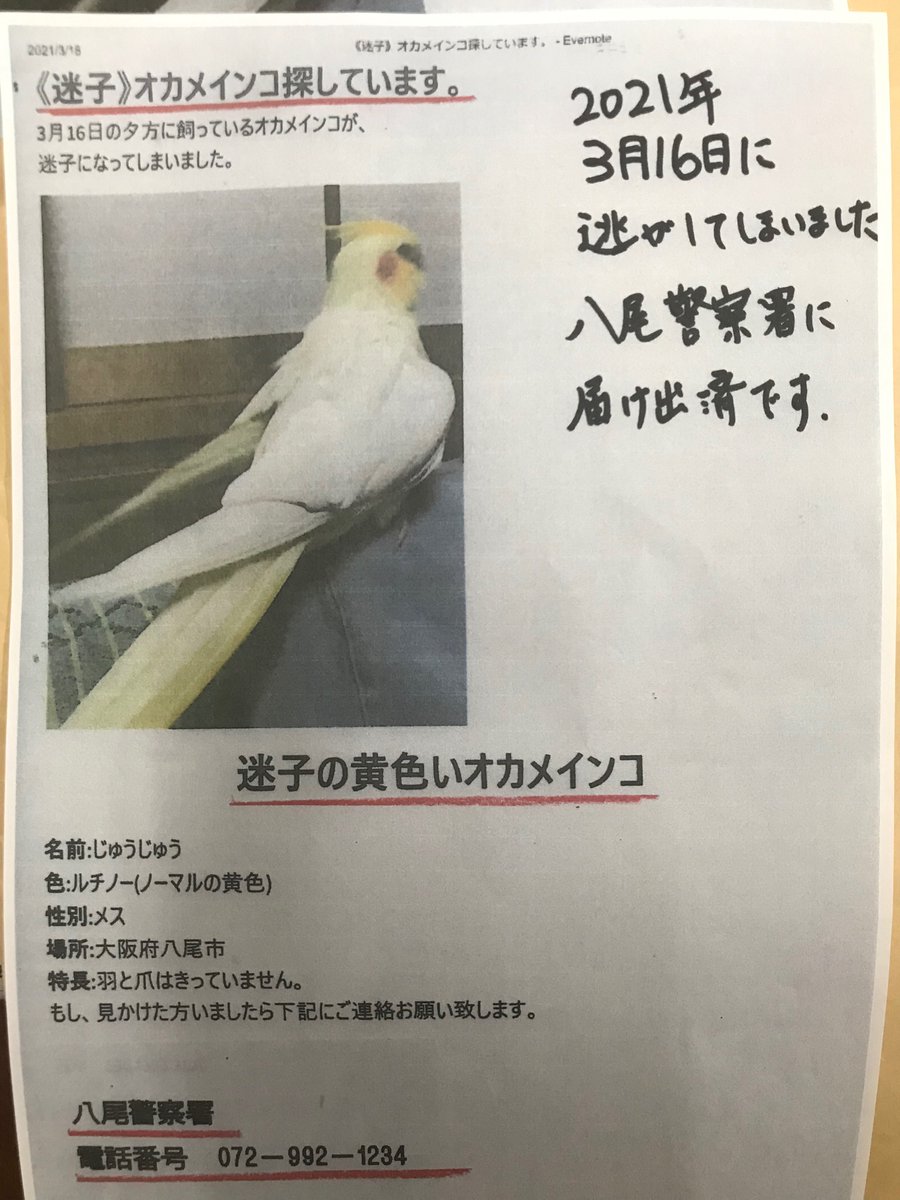 2021/3/18
《迷子》オカメインコ探しています。 - Evernote
《迷子》オカメインコ探しています。
3月16日の夕方に飼っているオカメインコが、
迷子になってしまいました。
2021年
3月16日に
逃がしてしまいました
八尾警察署に
届け出済です.
迷子の黄色いオカメインコ
名前:じゅうじゅう
色:ルチノー(ノーマルの黄色)
性別:メス
場所:大阪府八尾市
特長:羽と爪はきっていません。
もし、見かけた方いましたら下記にご連絡お願い致します。
八尾警察署
電話番号 072－992－1234